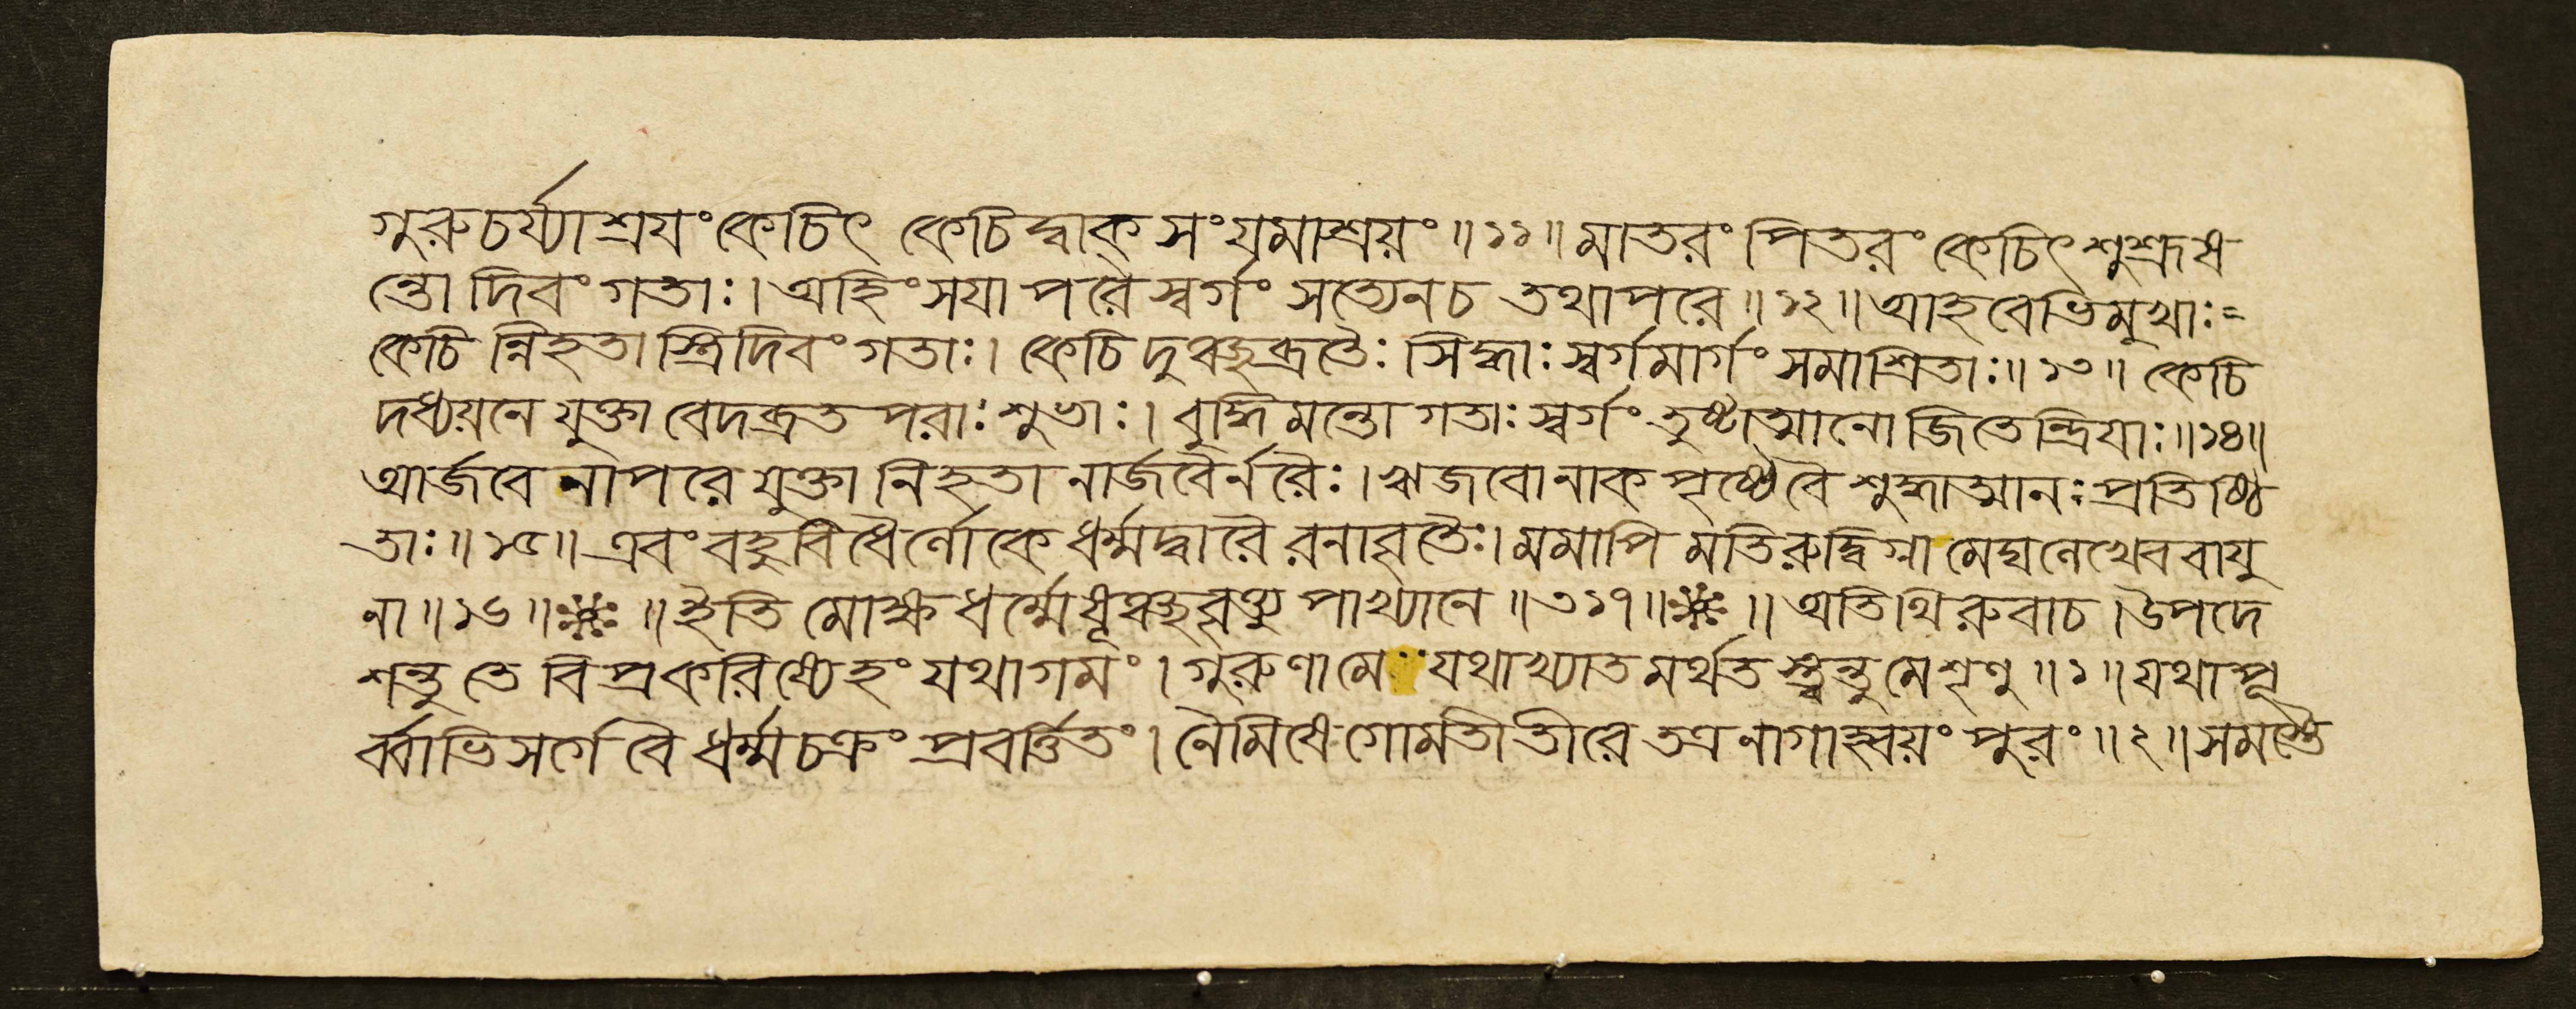 গুরুচর্য্যাশ্রযং কেচিৎ কেচিদ্বাক্সংযমাশ্রয়ং॥১১॥মাতরং পিতরং কেচিৎ শুশ্রূষ
ন্তো দিবং গতাঃ।অহিংসযা পরে স্বর্গং সত্যেনচ তথাপরে॥১২॥আহবেভিমুখাঃ=
কেচি ন্নিহতা স্ত্রিদিবং গতাঃ। কেচিদুঞ্ছব্রতৈঃ সিদ্ধাঃ স্বর্গমার্গং সমাশ্রিতাঃ॥১৩॥ কেচি
দধ্যয়নে যুক্তা বেদব্রত পরাঃ শুভাঃ। বুদ্ধিমন্তো গতাঃ স্বর্গং তুষ্টাত্মানো জিতেন্দ্রিযাঃ॥১৪॥
আর্জবে নাপরে যুক্তা নিহতা নার্জবৈর্নরৈঃ।ঋজবোনাক পৃষ্ঠেবৈ শুদ্ধাত্মানঃ প্রতিষ্ঠি
তাঃ॥১৫॥এবং বহুবিধৈর্লোকে ধর্ম্মদ্বারৈ রনাবৃতৈঃ।মমাপি মতিরুদ্বিগ্না মেঘলেখেব বাযু
না॥১৬॥ ॥ইতি মোক্ষধর্ম্মেষূঞ্ছবৃত্ত্যু পাখ্যানে॥৩১৭॥ ॥অতিথিরুবাচ।উপদে
শন্তু তে বিপ্রকরিষ্যেহং যথাগমং।গুরুণামে যথাখ্যাত মর্থত স্তত্ত্বন্তু মেশৃণু॥১॥যথাপূ
র্ব্বাভিসর্গে বৈ ধর্ম্মচক্রং প্রবর্ত্তিতং।নৈমিষে গোমতীতীরে তত্রনাগাহ্বয়ং পুরং॥২॥সমগ্রৈ